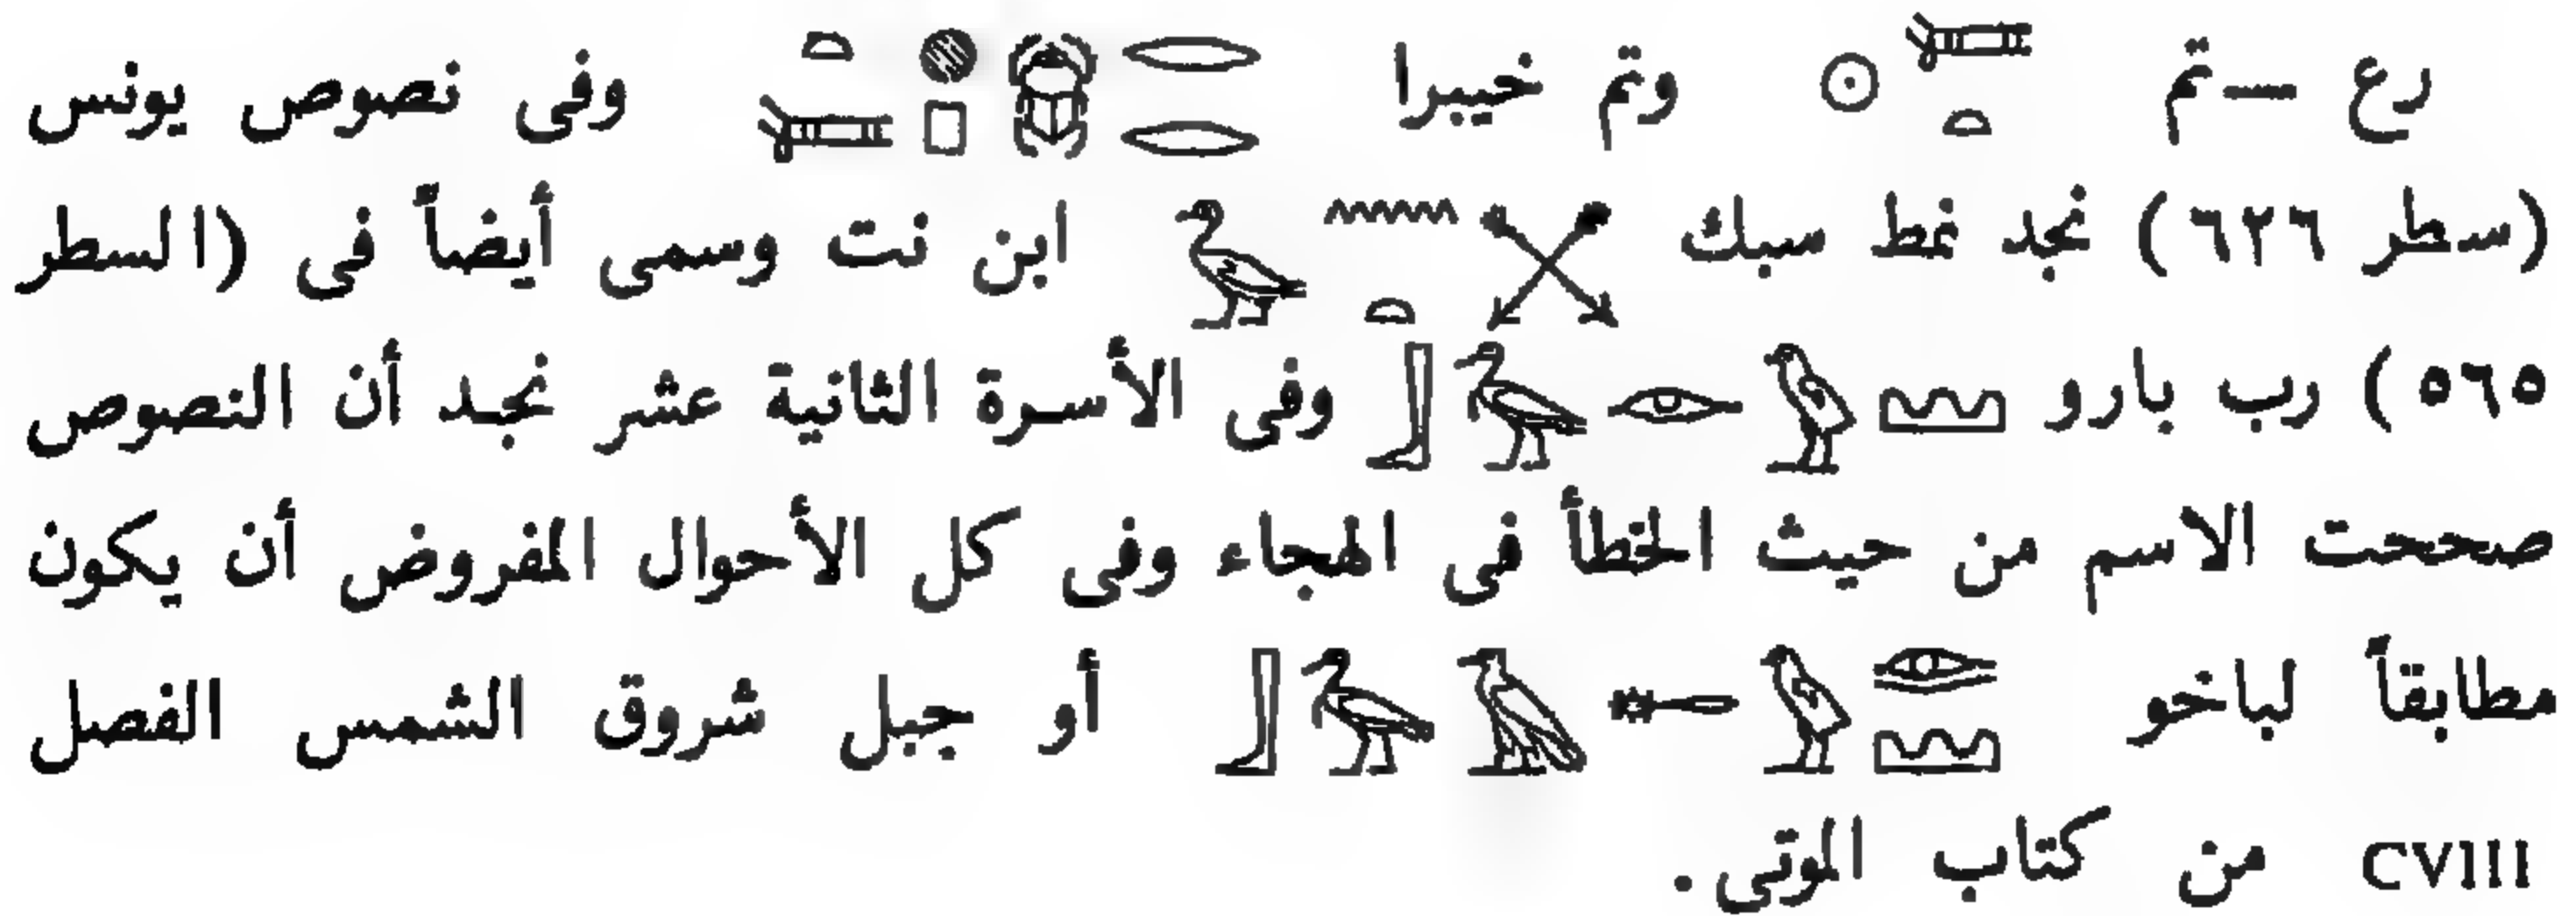 رع —تم وتم خيبرا وفى نصوص يونس
(سطر ٦٢٦) نجد نمط سبك ابن نت وسمى أيضاً فى (السطر
٥٦٥) رب بارو وفى الأسرة الثانية عشر نجد أن النصوص
صححت الاسم من حيث الخطأ فى الهجاء وفى كل الأحوال المفروض أن يكون
مطابقاً لباخو أو جبل شروق الشمس الفصل
CVIII من كتاب الموتى.